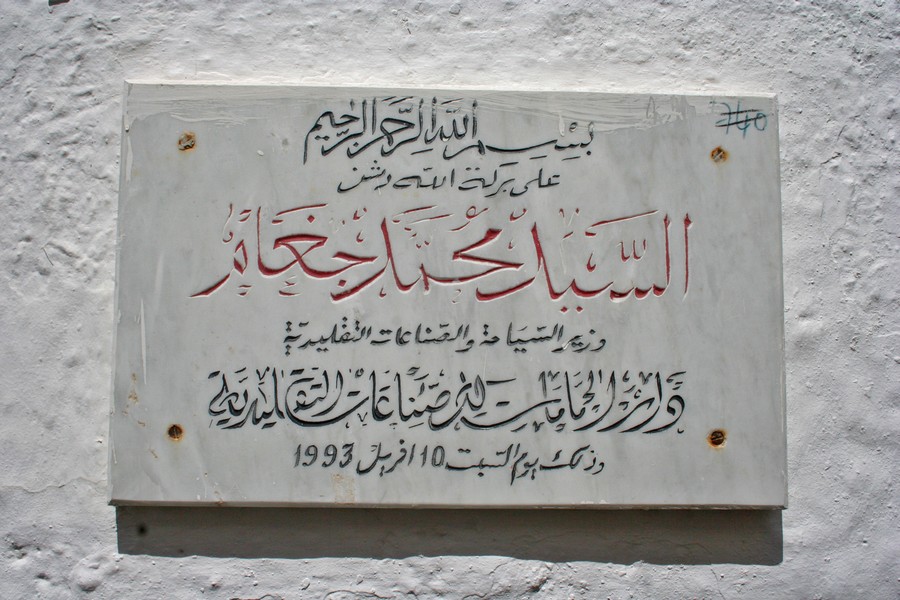 740
بسم الله الرحمن الرحيم
على بركة الله دشن
السيد محمد جغام
وزير السياحة والصناعات التقليدية
دار الحمامات للصناعات التقليدية
وذلك يوم السبت 10 افريل 1993